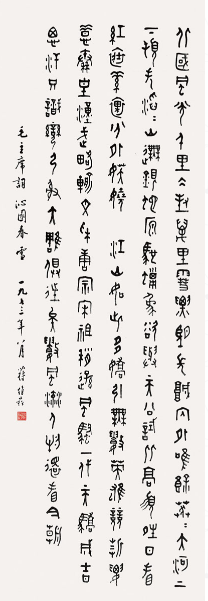 北國風光千里冰封萬里雪飄望長城內外惟餘莽莽大河上
下頓失滔滔山舞銀蛇原馳蠟象欲與天公試比高須晴日看
紅裝素裹分外妖嬈 江山如此多嬌引無數英雄競折腰
惜秦皇漢武略輸文采唐宗宋祖稍遜風騷一代天驕成吉
思汗只識彎弓射大雕俱往矣數風流人物還看今朝
毛主席詞 沁園春雪 一九七三年八月 蔣維崧